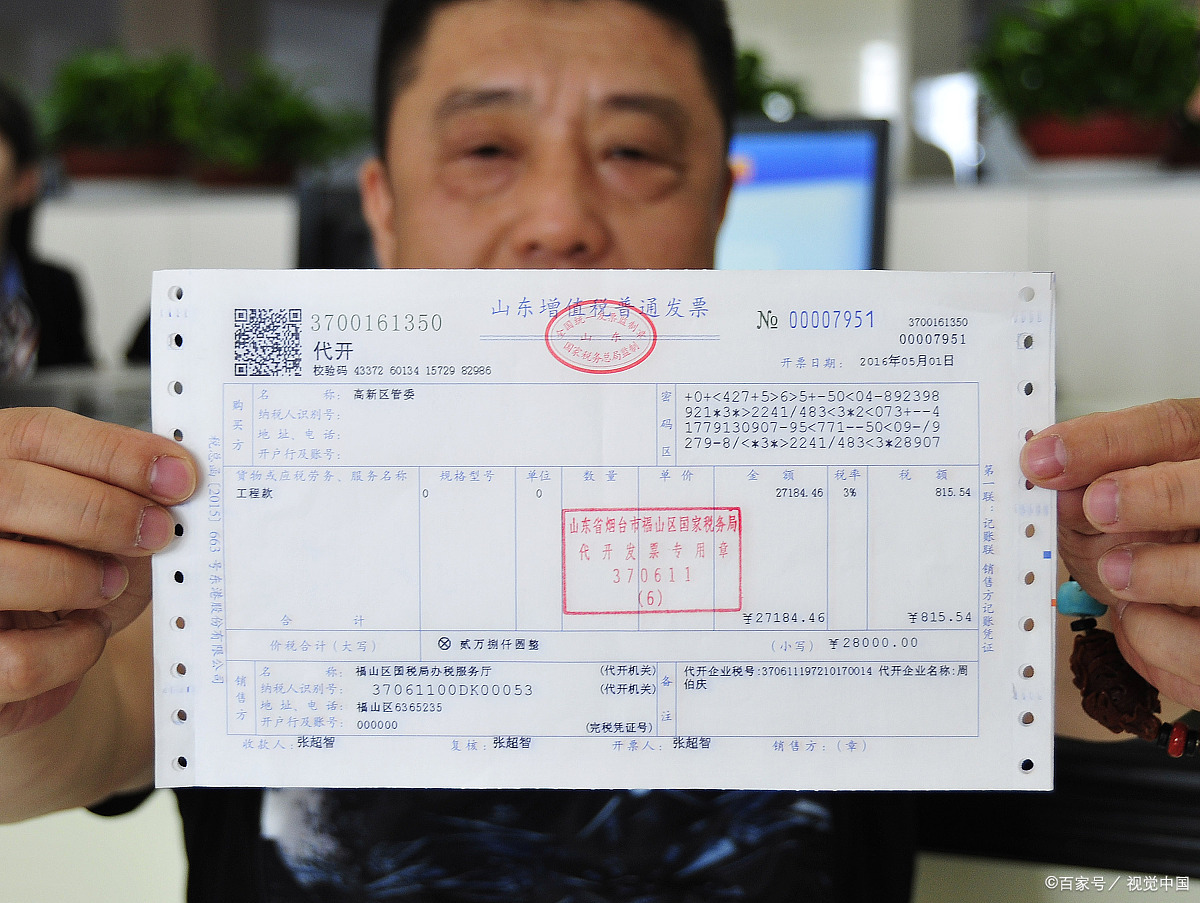 山东增值税普通发票
全国统一发票监制章
山东
国家税务总局监制
3700161350
代开
校验码 43372 60134 15729 82986
№ 00007951
3700161350
00007951
开票日期: 2016年05月01日
购买方
名 称: 高新区管委
纳税人识别号:
地址、电话:
开户行及账号:
密码区
+0+<427+5>6>5+-50<04-892398
921*3*>2241/483<3*2<073+--4
1779130907-95<771--50<09-/9
279-8/<*3*>2241/483<3*28907
货物或应税劳务、服务名称 规格型号 单位 数量 单价 金额 税率 税额
工程款 0 0 27184.46 3% 815.54
山东省烟台市福山区国家税务局
代开发票专用章
370611
(6)
合 计 ￥27184.46 ￥815.54
价税合计(大写) ⊗ 贰万捌仟圆整 (小写) ￥28000.00
销售方
名 称: 福山区国税局办税服务厅 (代开机关)
纳税人识别号: 37061100DK00053 (代开机关)
地址、电话: 福山区6365235
开户行及账号: 000000 (完税凭证号)
备注
代开企业税号:370611197210170014 代开企业名称:周
伯庆
收款人: 张超智 复核: 张超智 开票人: 张超智 销售方:(章)
税总函[2015]663号东港股份有限公司
第一联:记账联 销售方记账凭证
©百家号/视觉中国